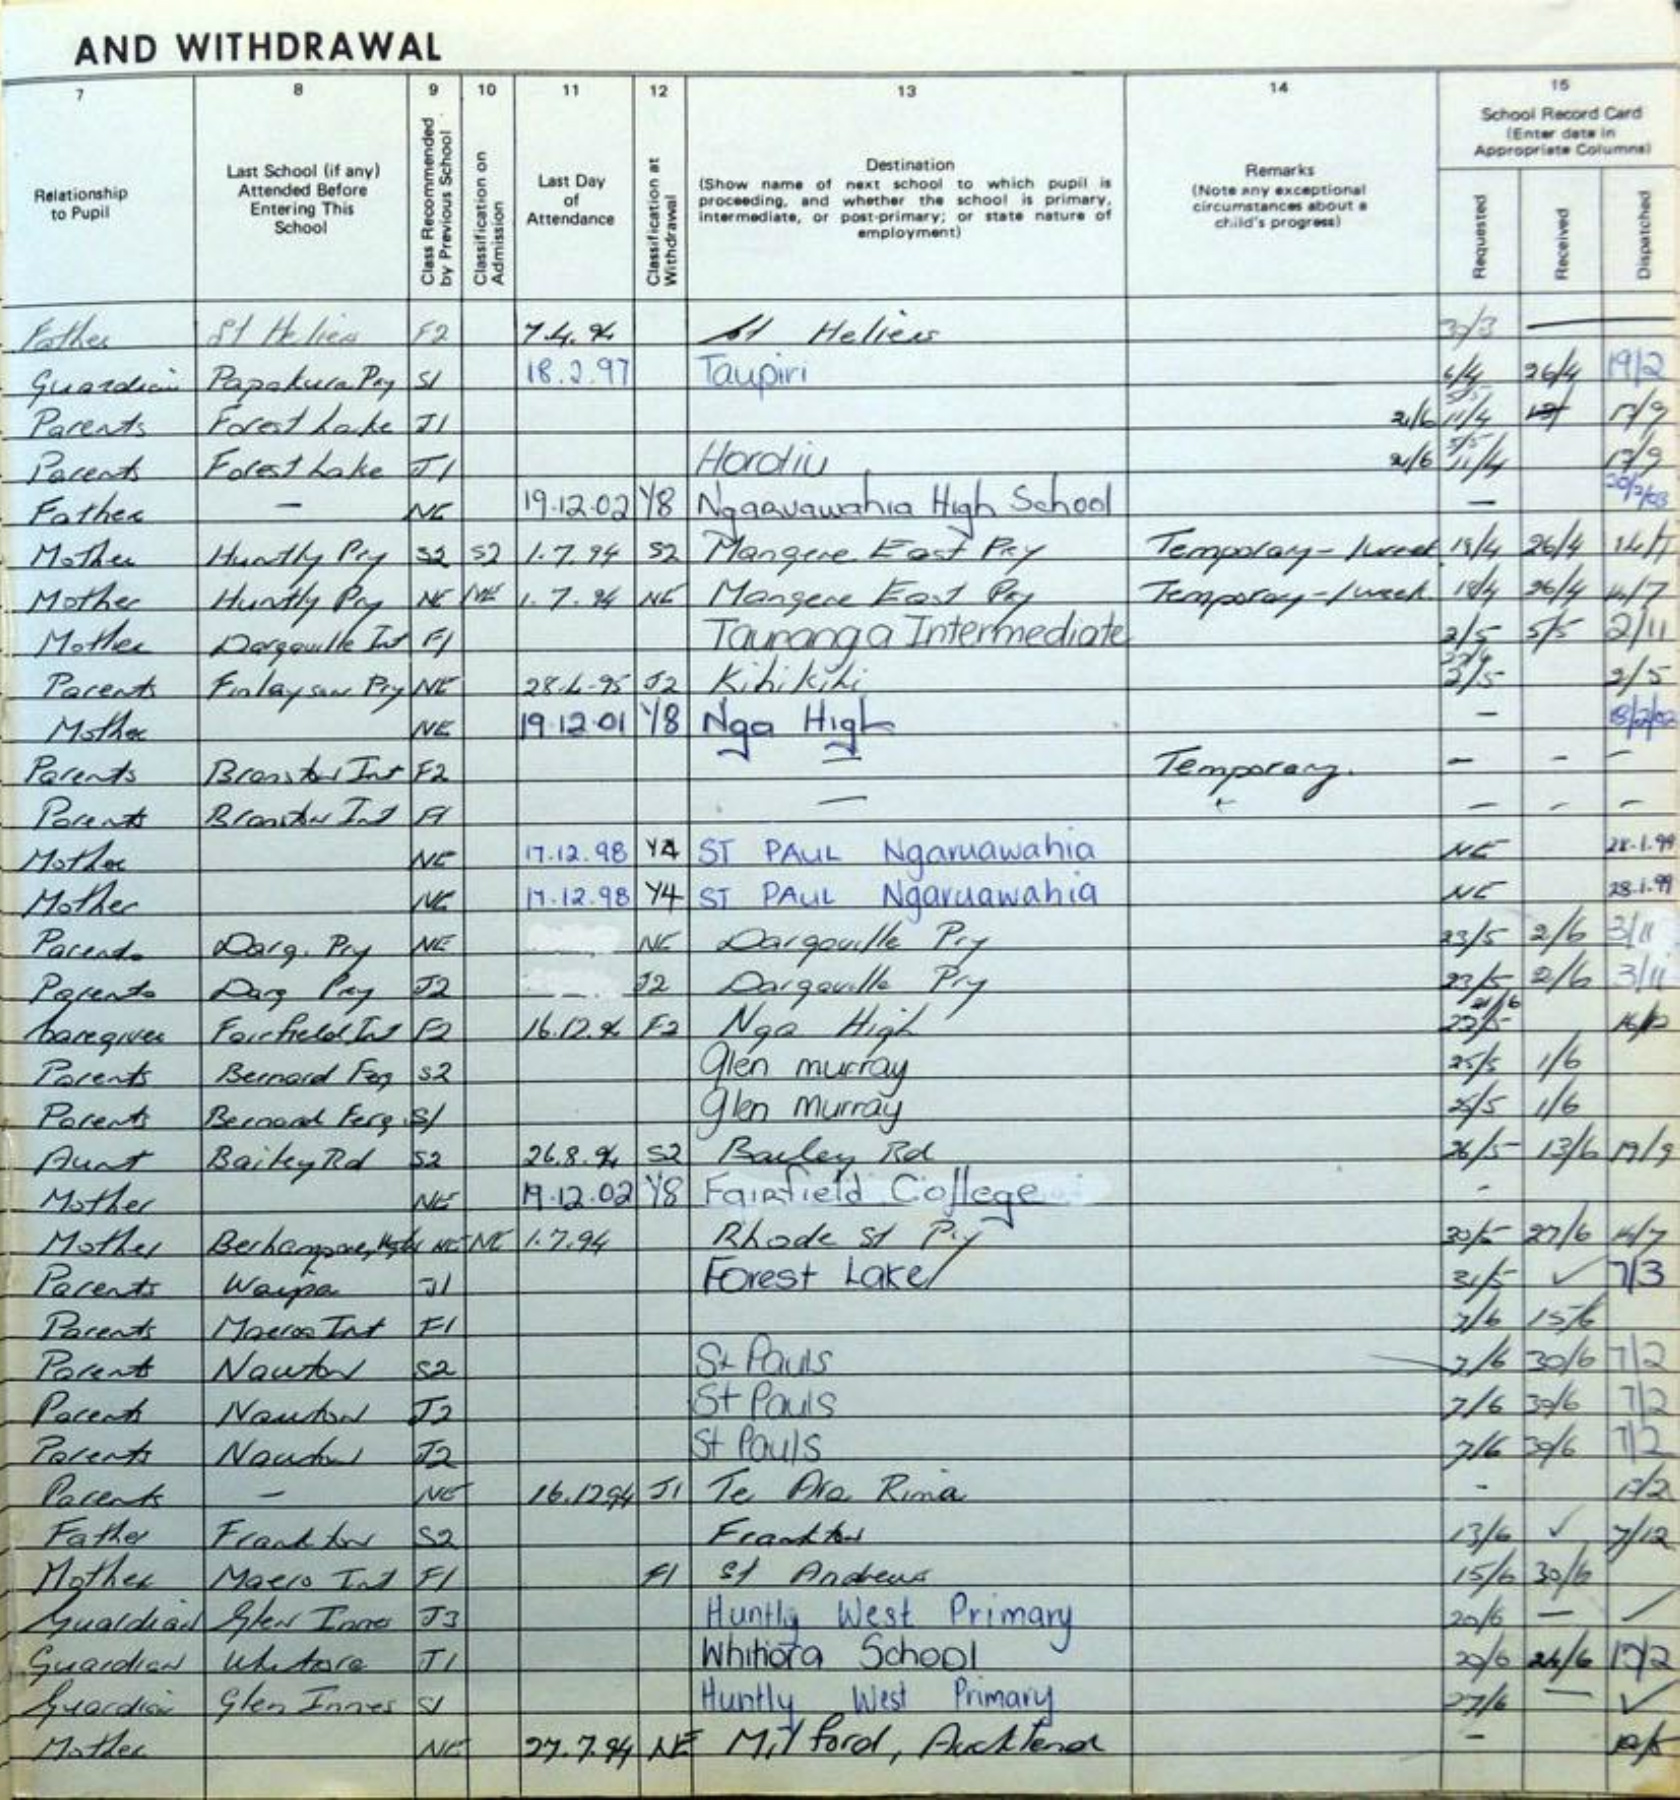 AND WITHDRAWAL
7 8 9 10 11 12 13 14 15
Relationship to Pupil
Last School (if any) Attended Before Entering This School
Class Recommended by Previous School
Classification on Admission
Last Day of Attendance
Classification at Withdrawal
Destination
(Show name of next school to which pupil is proceeding, and whether the school is primary, intermediate, or post-primary; or state nature of employment)
Remarks
(Note any exceptional circumstances about a child's progress)
School Record Card
(Enter date in Appropriate Columns)
Requested Received Dispatched
Father St Heliers F2 7.4.94 St Heliers —
Guardian Papakura Pry S1 18.2.97 Taupiri 6/4 26/4 19/2
Parents Forest Lake J1 21/6 11/4 17/9
Parents Forest Lake J1 21/6 11/4 17/9
Father — NE 19.12.02 Y8 Ngaruawahia High School —
Mother Huntly Pry S2 S2 1.7.94 S2 Mangere East Pry Temporary - 1 week 19/4 26/4
Mother Huntly Pry NE NE 1.7.94 NE Mangere East Pry Temporary - 1 week 19/4 26/4
Mother Dargaville Int F1 Tauranga Intermediate 2/5 5/5 2/11
Parents Finlayson Pry NE J2 Kihikihi 2/5 2/5
Mother NE 19.12.01 Y8 Nga High —
Parents F2 — Temporary. — — —
Parents F1 — — — —
Mother NE 17.12.98 Y4 ST PAUL Ngaruawahia NE 28.1.99
Mother NE 17.12.98 Y4 ST PAUL Ngaruawahia NE 28.1.99
Parents Darg. Pry NE NE Dargaville Pry 23/5 2/6 3/11
Parents Darg Pry J2 J2 Dargaville Pry 23/5 2/6 3/11
Caregiver Fairfield Int F2 16.12.94 F2 Nga High 23/5
Parents Bernard S2 Glen murray 25/5 1/6
Parents Bernard Ferg S1 Glen murray 25/5 1/6
Aunt Bailey Rd S2 26.8.94 S2 Bailey Rd 26/5 13/6 19/9
Mother NE 19.12.02 Y8 Fairfield College -
Mother Berhampore, NE NE 1.7.94 Rhode St Pry 30/5 27/6
Parents Waipa J1 Forest Lake 31/5 ✓ 7/3
Parents Int F1 7/6 15/6
Parents Nawton S2 St Pauls 7/6 30/6 7/2
Parents Nawton J2 St Pauls 7/6 30/6 7/2
Parents Nawton J2 St Pauls 7/6 30/6 7/2
Parents — NE 16.12.94 J1 Te Ara Rima - 17/2
Father Frankton S2 Frankton 13/6 ✓ 7/12
Mother Int F1 F1 St Andrews 15/6 30/6
Guardian Glen Innes J3 Huntly West Primary 20/6 —
Guardian Whitiora J1 Whitiora School 20/6 24/6 17/2
Guardian Glen Innes S1 Huntly West Primary 27/6 — ✓
Mother NE 27.7.94 NE Milford, Auckland -